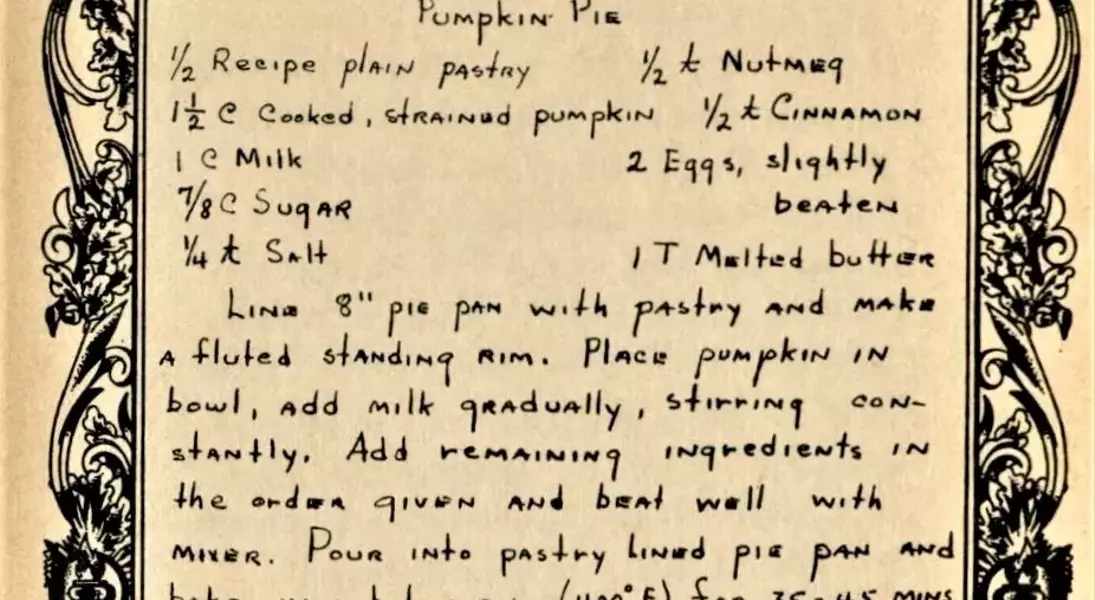 Pumpkin Pie
1/2 Recipe plain pastry 1/2 t Nutmeg
1 1/2 C Cooked, strained pumpkin 1/2 t Cinnamon
1 C Milk 2 Eggs, slightly
7/8 C Sugar beaten
1/4 t Salt 1 T Melted butter
Line 8" pie pan with pastry and make
a fluted standing rim. Place pumpkin in
bowl, add milk gradually, stirring con-
stantly. Add remaining ingredients in
the order given and beat well with
mixer. Pour into pastry lined pie pan and
(400°F) for 35-45 mins